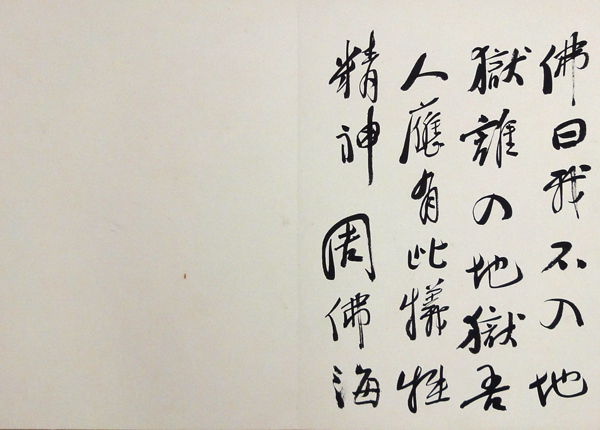 佛曰我不入地
獄誰入地獄吾
人應有此犧牲
精神 周佛海